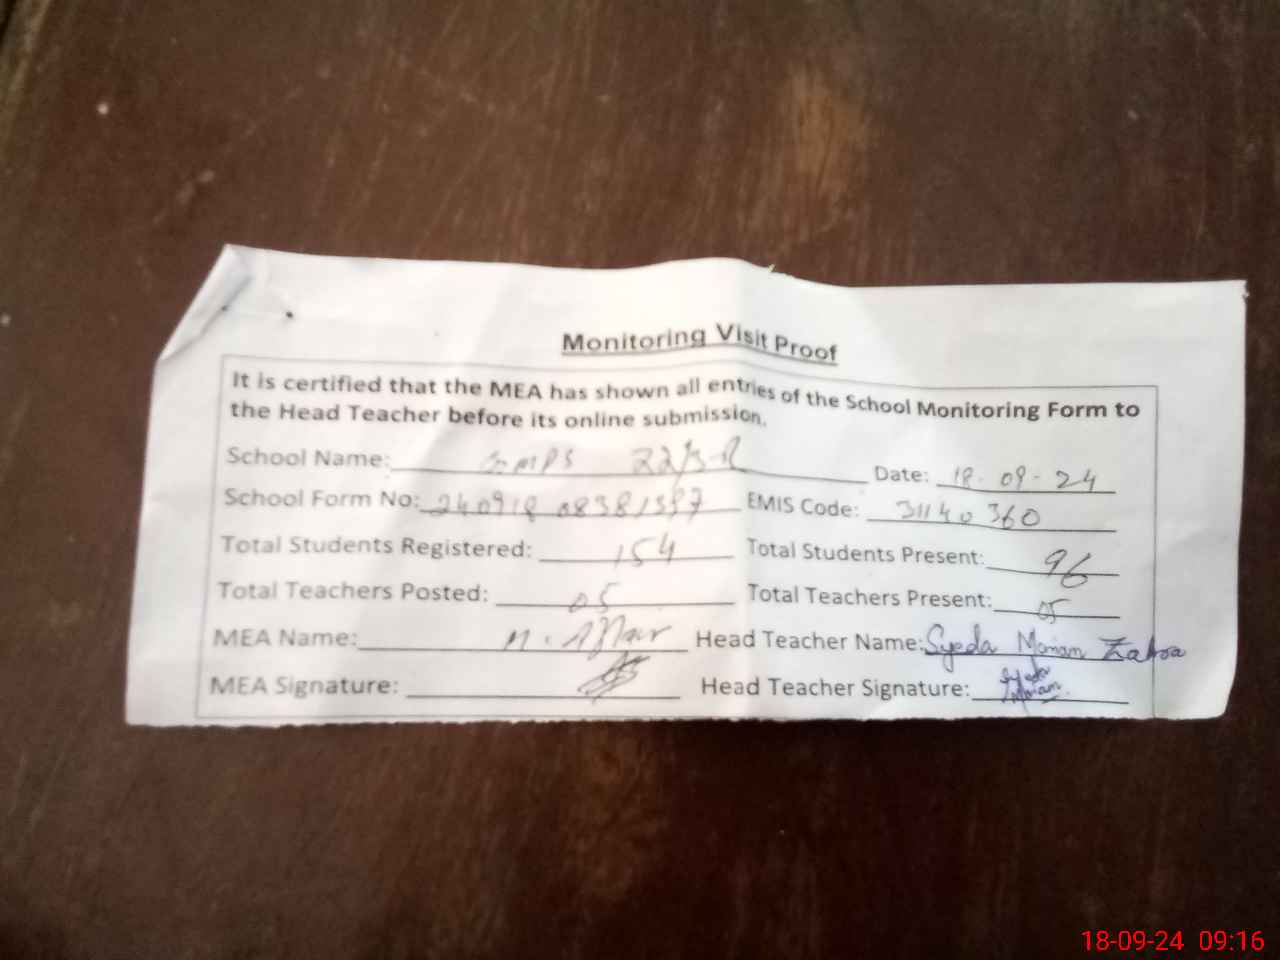 Monitoring Visit Proof
It is certified that the MEA has shown all entries of the School Monitoring Form to
the Head Teacher before its online submission.
School Name: GMPS 22/3-R Date: 18-09-24
School Form No: 240918 08381537 EMIS Code: 31140360
Total Students Registered: 154 Total Students Present: 96
Total Teachers Posted: 05 Total Teachers Present: 05
MEA Name: M. Head Teacher Name: Syeda Mariam Zahra
MEA Signature: Head Teacher Signature: Syeda
Mariam
18-09-24 09:16